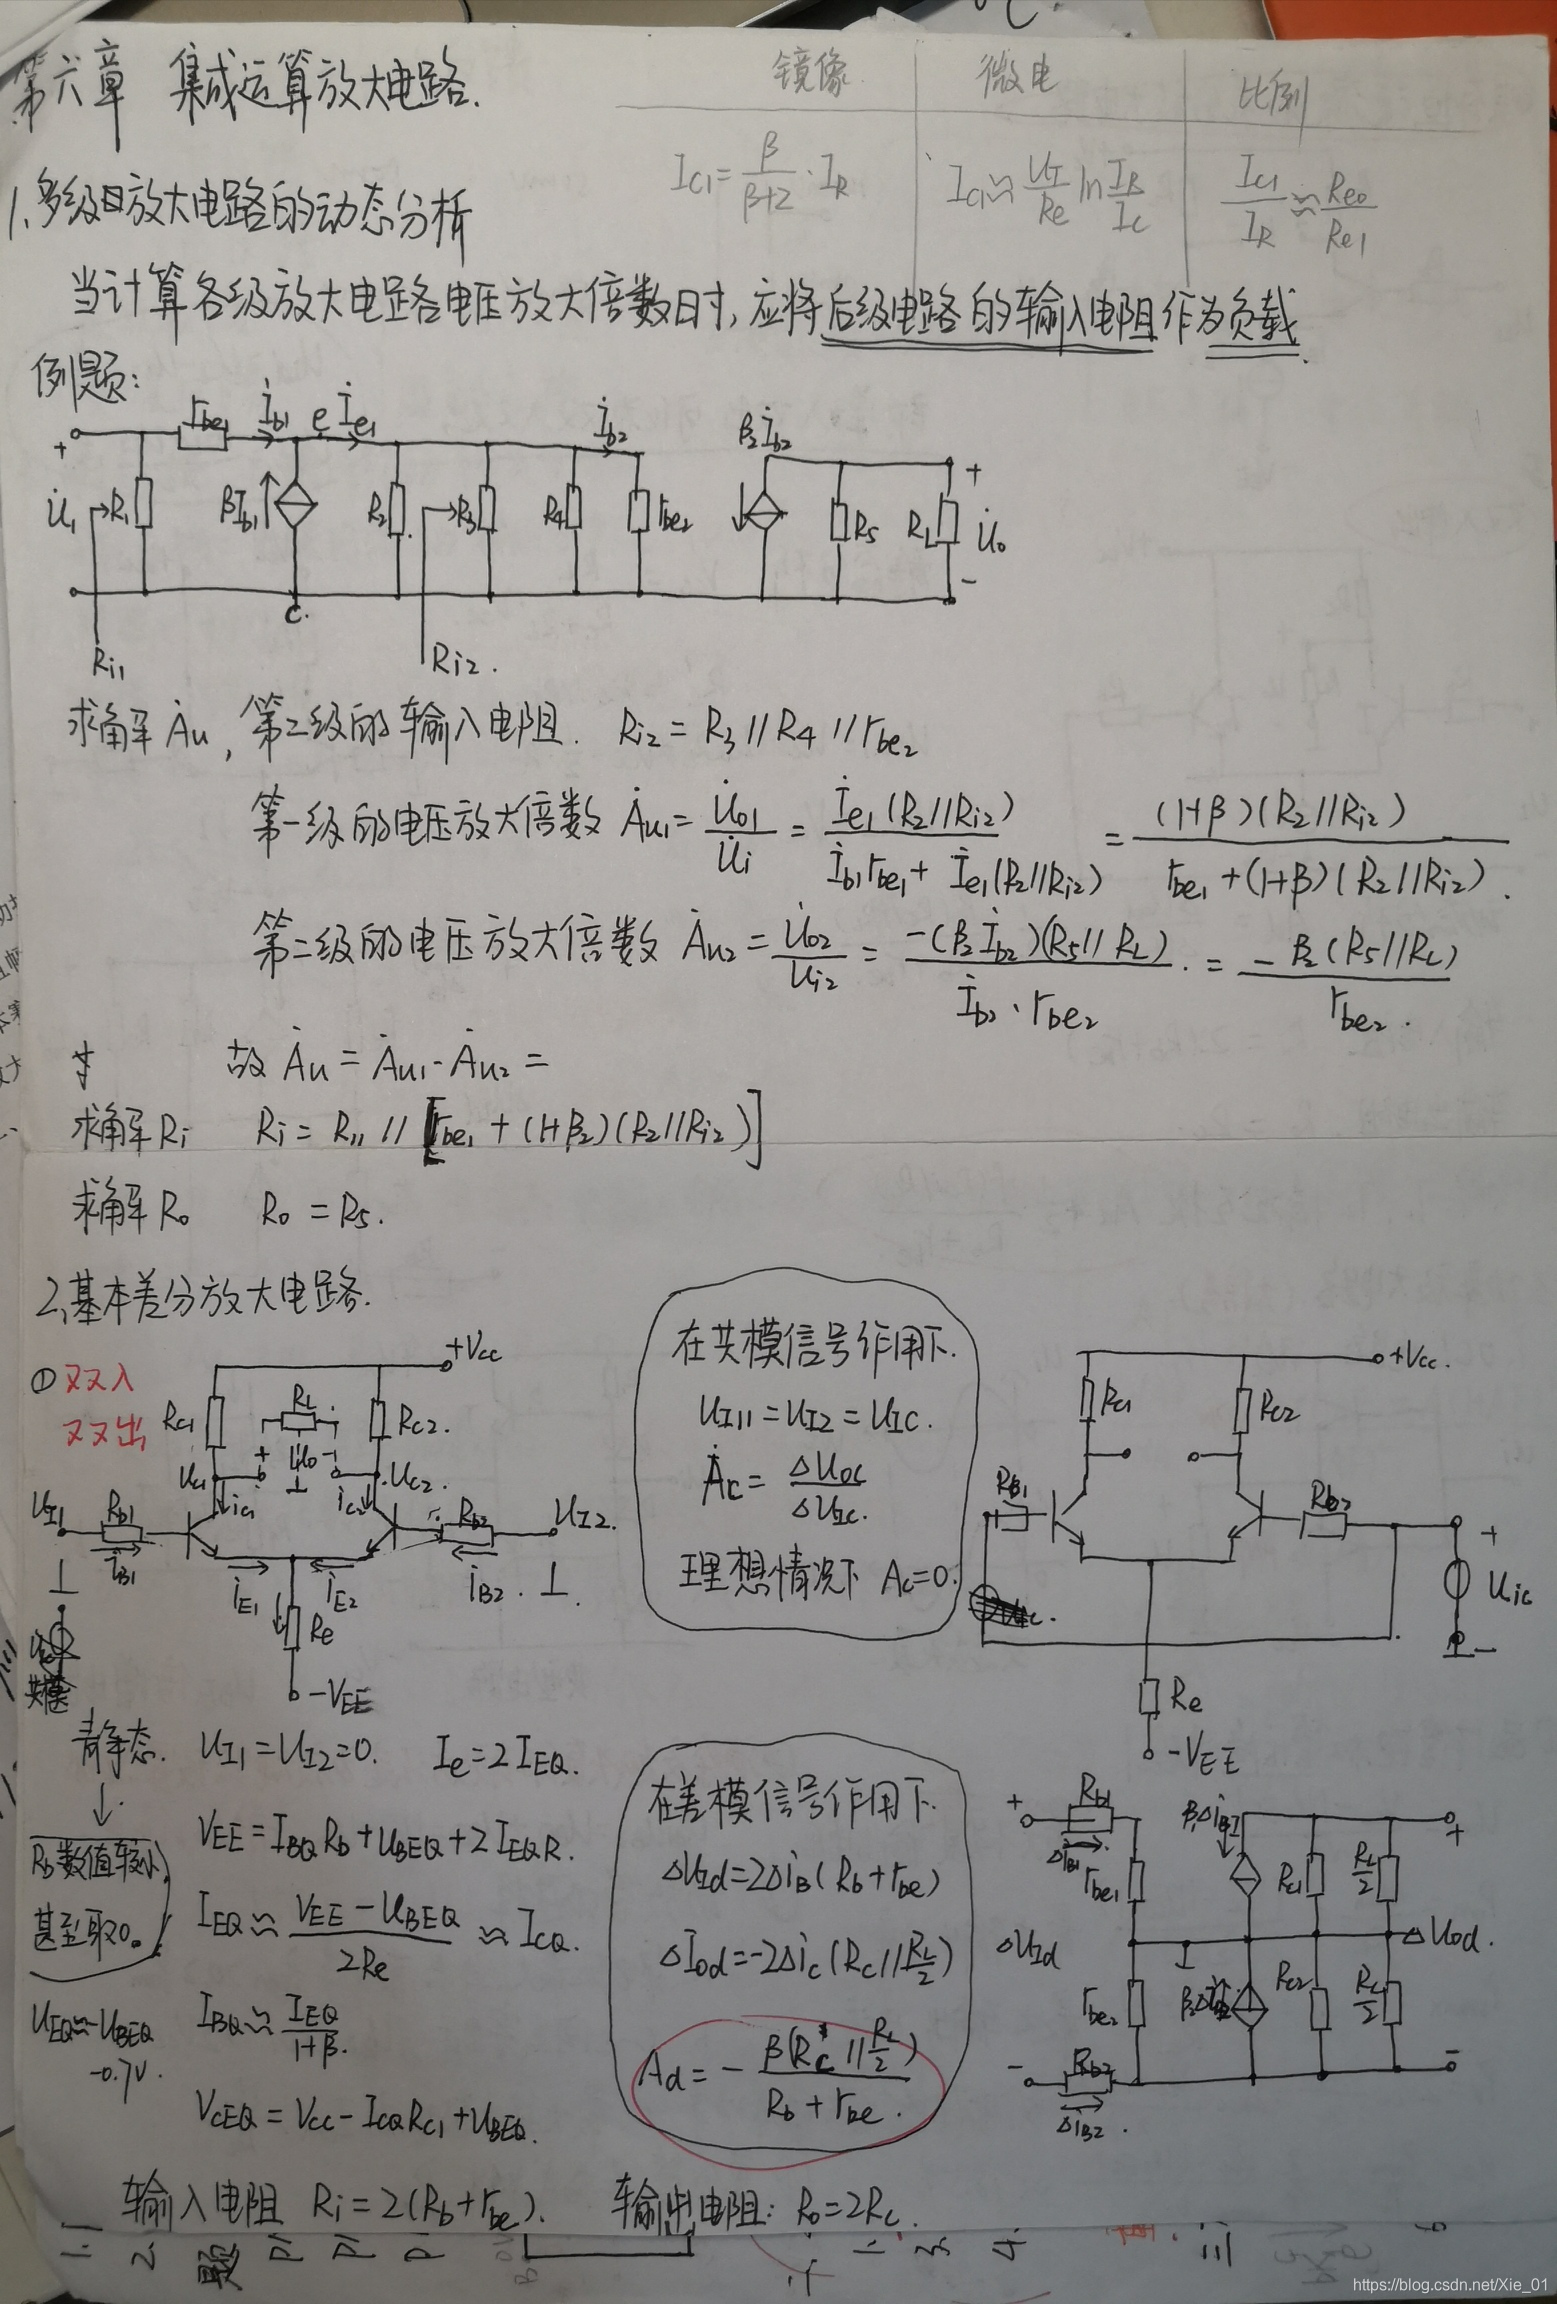 第六章 集成运算放大电路.
镜像 微电 比例
I_{C1}=\frac{β}{β+2}·I_R I_{C1}≈\frac{U_T}{Re}ln\frac{I_R}{I_C} \frac{I_{C1}}{I_R}≈\frac{Re0}{Re1}
1.多级放大电路的动态分析
当计算各级放大电路电压放大倍数时,应将后级电路的输入电阻作为负载.
例题:
r_{be1} İ_{b1} e İ_{e1} İ_{b2} β_2İ_{b2}
+ U̇_1 R_1 βİ_{b1} R_2 R_3 R_4 r_{be2} R_5 R_L + U̇_o -
c.
R_{i1} R_{i2}.
求解Ȧu, 第二级的输入电阻. R_{i2}=R_3//R_4//r_{be2}
第一级的电压放大倍数 Ȧ_{u1}=\frac{U̇_{o1}}{U̇_i}=\frac{İ_{e1}(R_2//R_{i2})}{İ_{b1}r_{be1}+İ_{e1}(R_2//R_{i2})}=\frac{(1+β)(R_2//R_{i2})}{r_{be1}+(1+β)(R_2//R_{i2})}.
第二级的电压放大倍数 Ȧ_{u2}=\frac{U̇_{o2}}{U_{i2}}=\frac{-(β_2İ_{b2})(R_5//R_L)}{İ_{b2}·r_{be2}}.=\frac{-β_2(R_5//R_L)}{r_{be2}}.
故 Ȧu=Ȧ_{u1}·Ȧ_{u2}=
求解Ri Ri=R_1//[r_{be1}+(1+β_2)(R_2//R_{i2})]
求解Ro Ro=R_5.
2.基本差分放大电路.
①双入
双出
+Vcc
R_{C1} R_L R_{C2}.
U_{C1} + U_o - U_{C2}.
i_{C1} i_{C2}
U_{I1} R_{b1} R_{b2} U_{I2}.
i_{B1} i_{E1} i_{E2} i_{B2}.
Re
-V_{EE}
共模
在共模信号作用下.
U_{I1}=U_{I2}=U_{IC}.
Ȧc=\frac{ΔU_{OC}}{ΔU_{IC}}.
理想情况下 Ac=0.
+Vcc.
R_{C1} R_{C2}
R_{B1} R_{b2}
+ U_{ic} -
Re
-V_{EE}
静态. U_{I1}=U_{I2}=0. Ie=2I_{EQ}.
V_{EE}=I_{BQ}R_b+U_{BEQ}+2I_{EQ}R.
R_b数值较小,
甚至取0。
I_{EQ}≈\frac{V_{EE}-U_{BEQ}}{2Re}≈I_{CQ}.
U_{EQ}≈-U_{BEQ}
-0.7V.
I_{BQ}≈\frac{I_{EQ}}{1+β}.
V_{CEQ}=Vcc-I_{CQ}R_{C1}+U_{BEQ}.
在差模信号作用下.
ΔU_{Id}=2Δi_B(R_b+r_{be})
ΔI_{od}=-2Δi_c(R_c//\frac{R_L}{2})
A_d=-\frac{β(R_c//\frac{R_L}{2})}{R_b+r_{be}}.
+ R_{b1} Δi_{B1} r_{be1} R_{C1} \frac{R_L}{2} +
ΔU_{Id} ΔU_{od}.
r_{be2} R_{C2} \frac{R_L}{2}
- R_{b2} -
Δi_{B2}.
输入电阻 Ri=2(R_b+r_{be}). 输出电阻: Ro=2Rc.
https://blog.csdn.net/Xie_01